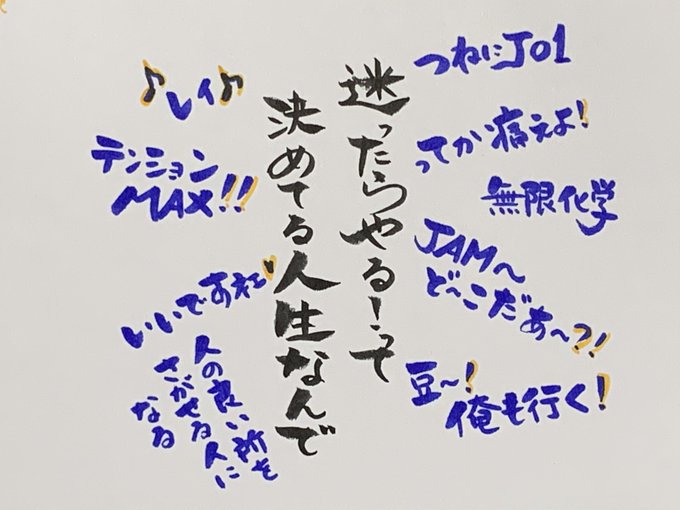 つねにJO1
ってか痛えよ!
無限化学
JAM〜
ど〜こだぁ〜?!
豆〜!
俺も行く!
迷ったらやる!って
決めてる人生なんで
♪レイ♪
テンション
MAX!!
いいですねェ
人の良い所を
さがせる人に
なる